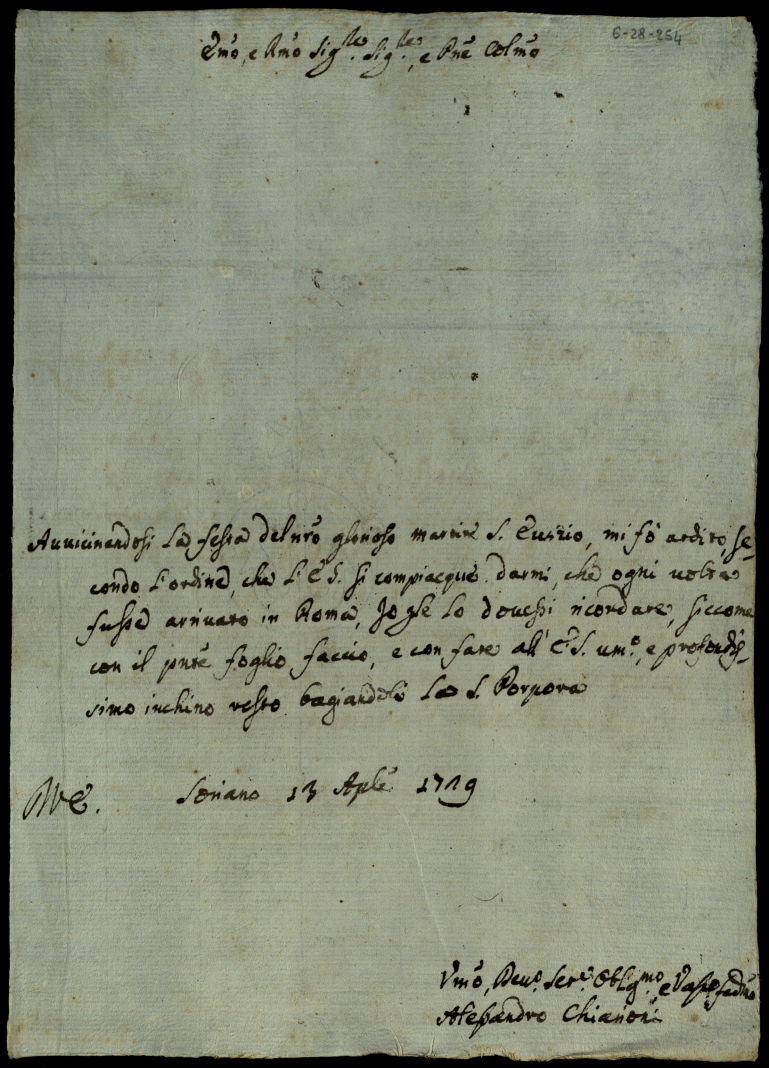 6-28-254
Emo, e Rmo Sig.re Sig.re, e Pne Colmo
Avvicinandosi la festa del nro glorioso martire S. Eutizio, mi fò ardito, se-
condo l'ordine, che l'E.S. si compiacque darmi, che ogni volta
fusse arrivato in Roma, Jo gle lo dovessi ricordare, siccome
con il pnte foglio faccio, e con fare all'E.S. um.o, e profondis-
simo inchino resto bagiandole la S. Porpora
Soriano 13 Aple 1729
Vmo, Dev.o Ser.e Obligmo, e Vass.o fedmo
Alessandro Chianoni